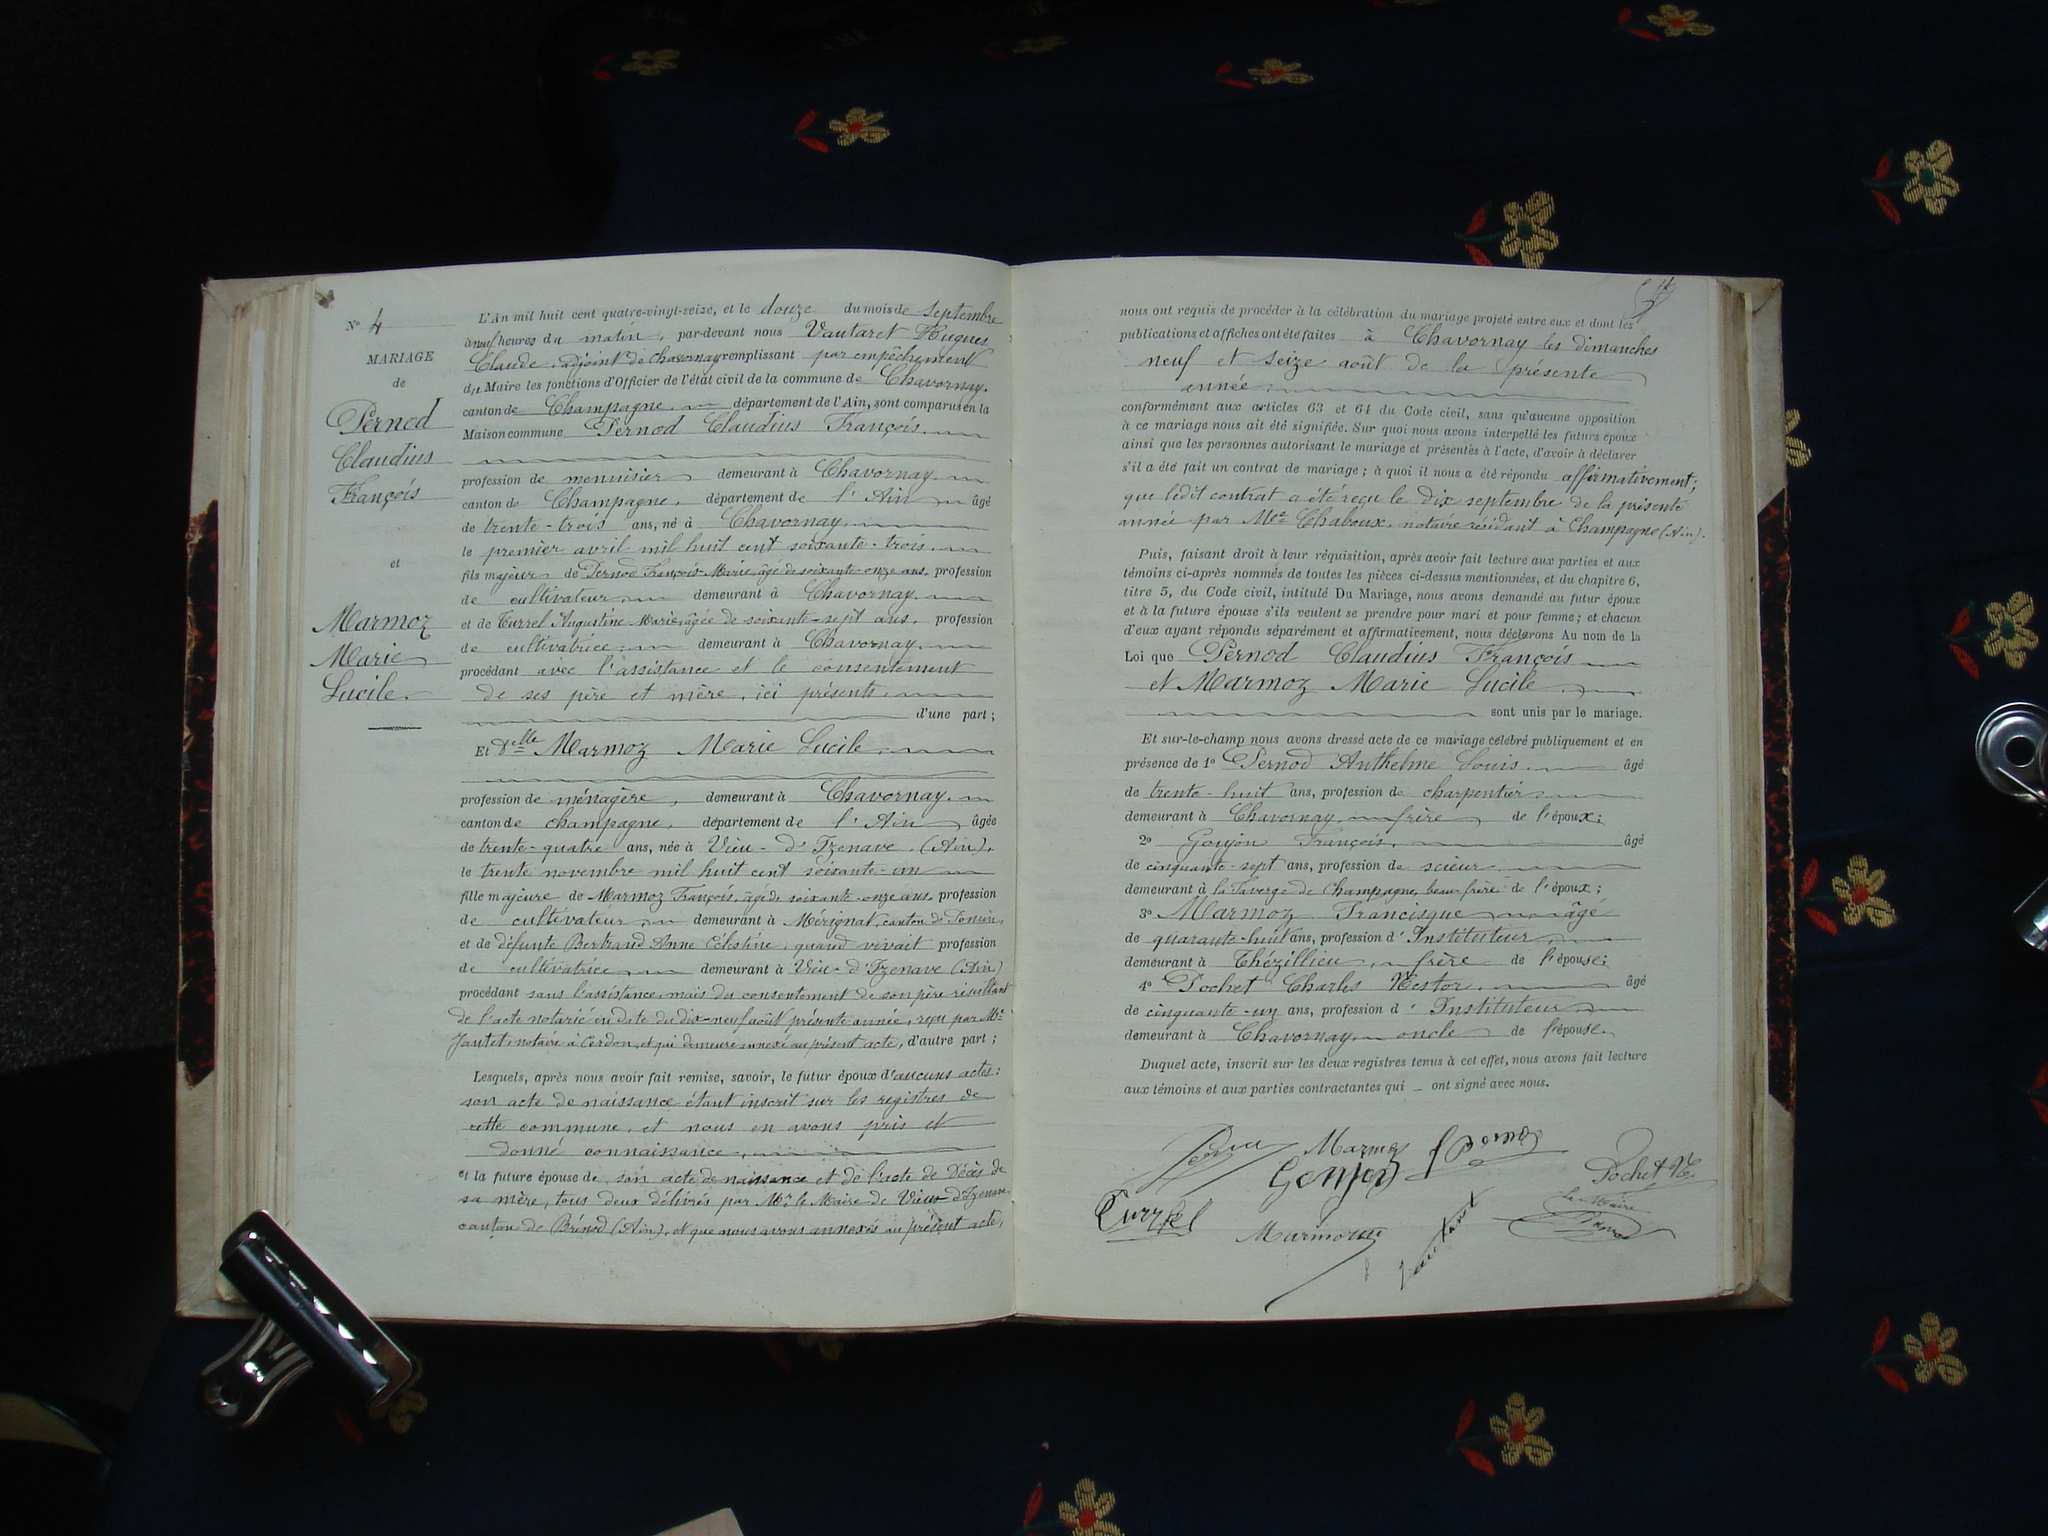 N° 4
MARIAGE
de
Pernod
Claudius
François
et
Marmoz
Marie
Lucile.
L'An mil huit cent quatre-vingt-seize, et le douze du mois de septembre
à neuf heures du matin, par-devant nous Vautaret Hugues
Claude, adjoint de Chavornay remplissant par empêchement
du Maire les fonctions d'Officier de l'état civil de la commune de Chavornay.
canton de Champagne, département de l'Ain, sont comparus en la
Maison commune Pernod Claudius François.
profession de menuisier demeurant à Chavornay.
canton de Champagne, département de l'Ain âgé
de trente-trois ans, né à Chavornay.
le premier avril mil huit cent soixante-trois.
fils majeur de Pernod François-Marie, âgé de soixante-onze ans, profession
de cultivateur demeurant à Chavornay.
et de Turrel Augustine Marie, âgée de soixante-sept ans, profession
de cultivatrice demeurant à Chavornay.
procédant avec l'assistance et le consentement
de ses père et mère, ici présents.
d'une part ;
Et Delle Marmoz Marie Lucile.
profession de ménagère, demeurant à Chavornay.
canton de champagne, département de l'Ain âgée
de trente-quatre ans, née à Vieu-d'Izenave, (Ain),
le trente novembre mil huit cent soixante-un
fille majeure de Marmoz François, âgé de soixante-onze ans, profession
de cultivateur demeurant à Mérignat, canton de Poncin,
et de défunte Bertrand Anne Célestine, quand vivait profession
de cultivatrice demeurant à Vieu-d'Izenave (Ain)
procédant sans l'assistance, mais du consentement de son père résultant
de l'acte notarié en date du dix-neuf août présente année, reçu par Me
notaire à Cerdon, et qui demeure annexé au présent acte, d'autre part ;
Lesquels, après nous avoir fait remise, savoir, le futur époux d'aucuns actes :
son acte de naissance étant inscrit sur les registres de
cette commune, et nous en avons pris et
donné connaissance,
et la future épouse de son acte de naissance et de l'acte de Décès de
sa mère, tous deux délivrés par Mr le Maire de Vieu-d'Izenave,
canton de Brénod (Ain), et que nous avons annexés au présent acte,
nous ont requis de procéder à la célébration du mariage projeté entre eux et dont les
publications et affiches ont été faites à Chavornay les dimanches
neuf et seize août de la présente
année
conformément aux articles 63 et 64 du Code civil, sans qu'aucune opposition
à ce mariage nous ait été signifiée. Sur quoi nous avons interpellé les futurs époux
ainsi que les personnes autorisant le mariage et présentes à l'acte, d'avoir à déclarer
s'il a été fait un contrat de mariage ; à quoi il nous a été répondu affirmativement ;
que ledit contrat a été reçu le dix septembre de la présente
année par Me Chaboux, notaire résidant à Champagne (Ain).
Puis, faisant droit à leur réquisition, après avoir fait lecture aux parties et aux
témoins ci-après nommés de toutes les pièces ci-dessus mentionnées, et du chapitre 6,
titre 5, du Code civil, intitulé Du Mariage, nous avons demandé au futur époux
et à la future épouse s'ils veulent se prendre pour mari et pour femme ; et chacun
d'eux ayant répondu séparément et affirmativement, nous déclarons Au nom de la
Loi que Pernod Claudius François
et Marmoz Marie Lucile
sont unis par le mariage.
Et sur-le-champ nous avons dressé acte de ce mariage célébré publiquement et en
présence de 1° Pernod Anthelme Louis. âgé
de trente-huit ans, profession de charpentier
demeurant à Chavornay, frère de l'époux ;
2° Goujon François, âgé
de cinquante-sept ans, profession de scieur
demeurant à de Champagne, beau-frère de l'époux ;
3° Marmoz Francisque âgé
de quarante-huit ans, profession d'Instituteur
demeurant à Thézillieu, frère de l'épouse ;
4° Pochet Charles Nestor. âgé
de cinquante-un ans, profession d'Instituteur
demeurant à Chavornay oncle de l'épouse.
Duquel acte, inscrit sur les deux registres tenus à cet effet, nous avons fait lecture
aux témoins et aux parties contractantes qui _ ont signé avec nous.
Marmoz
Goujon
Pochet N
Turrel
Marmoz
Vautaret
le Maire